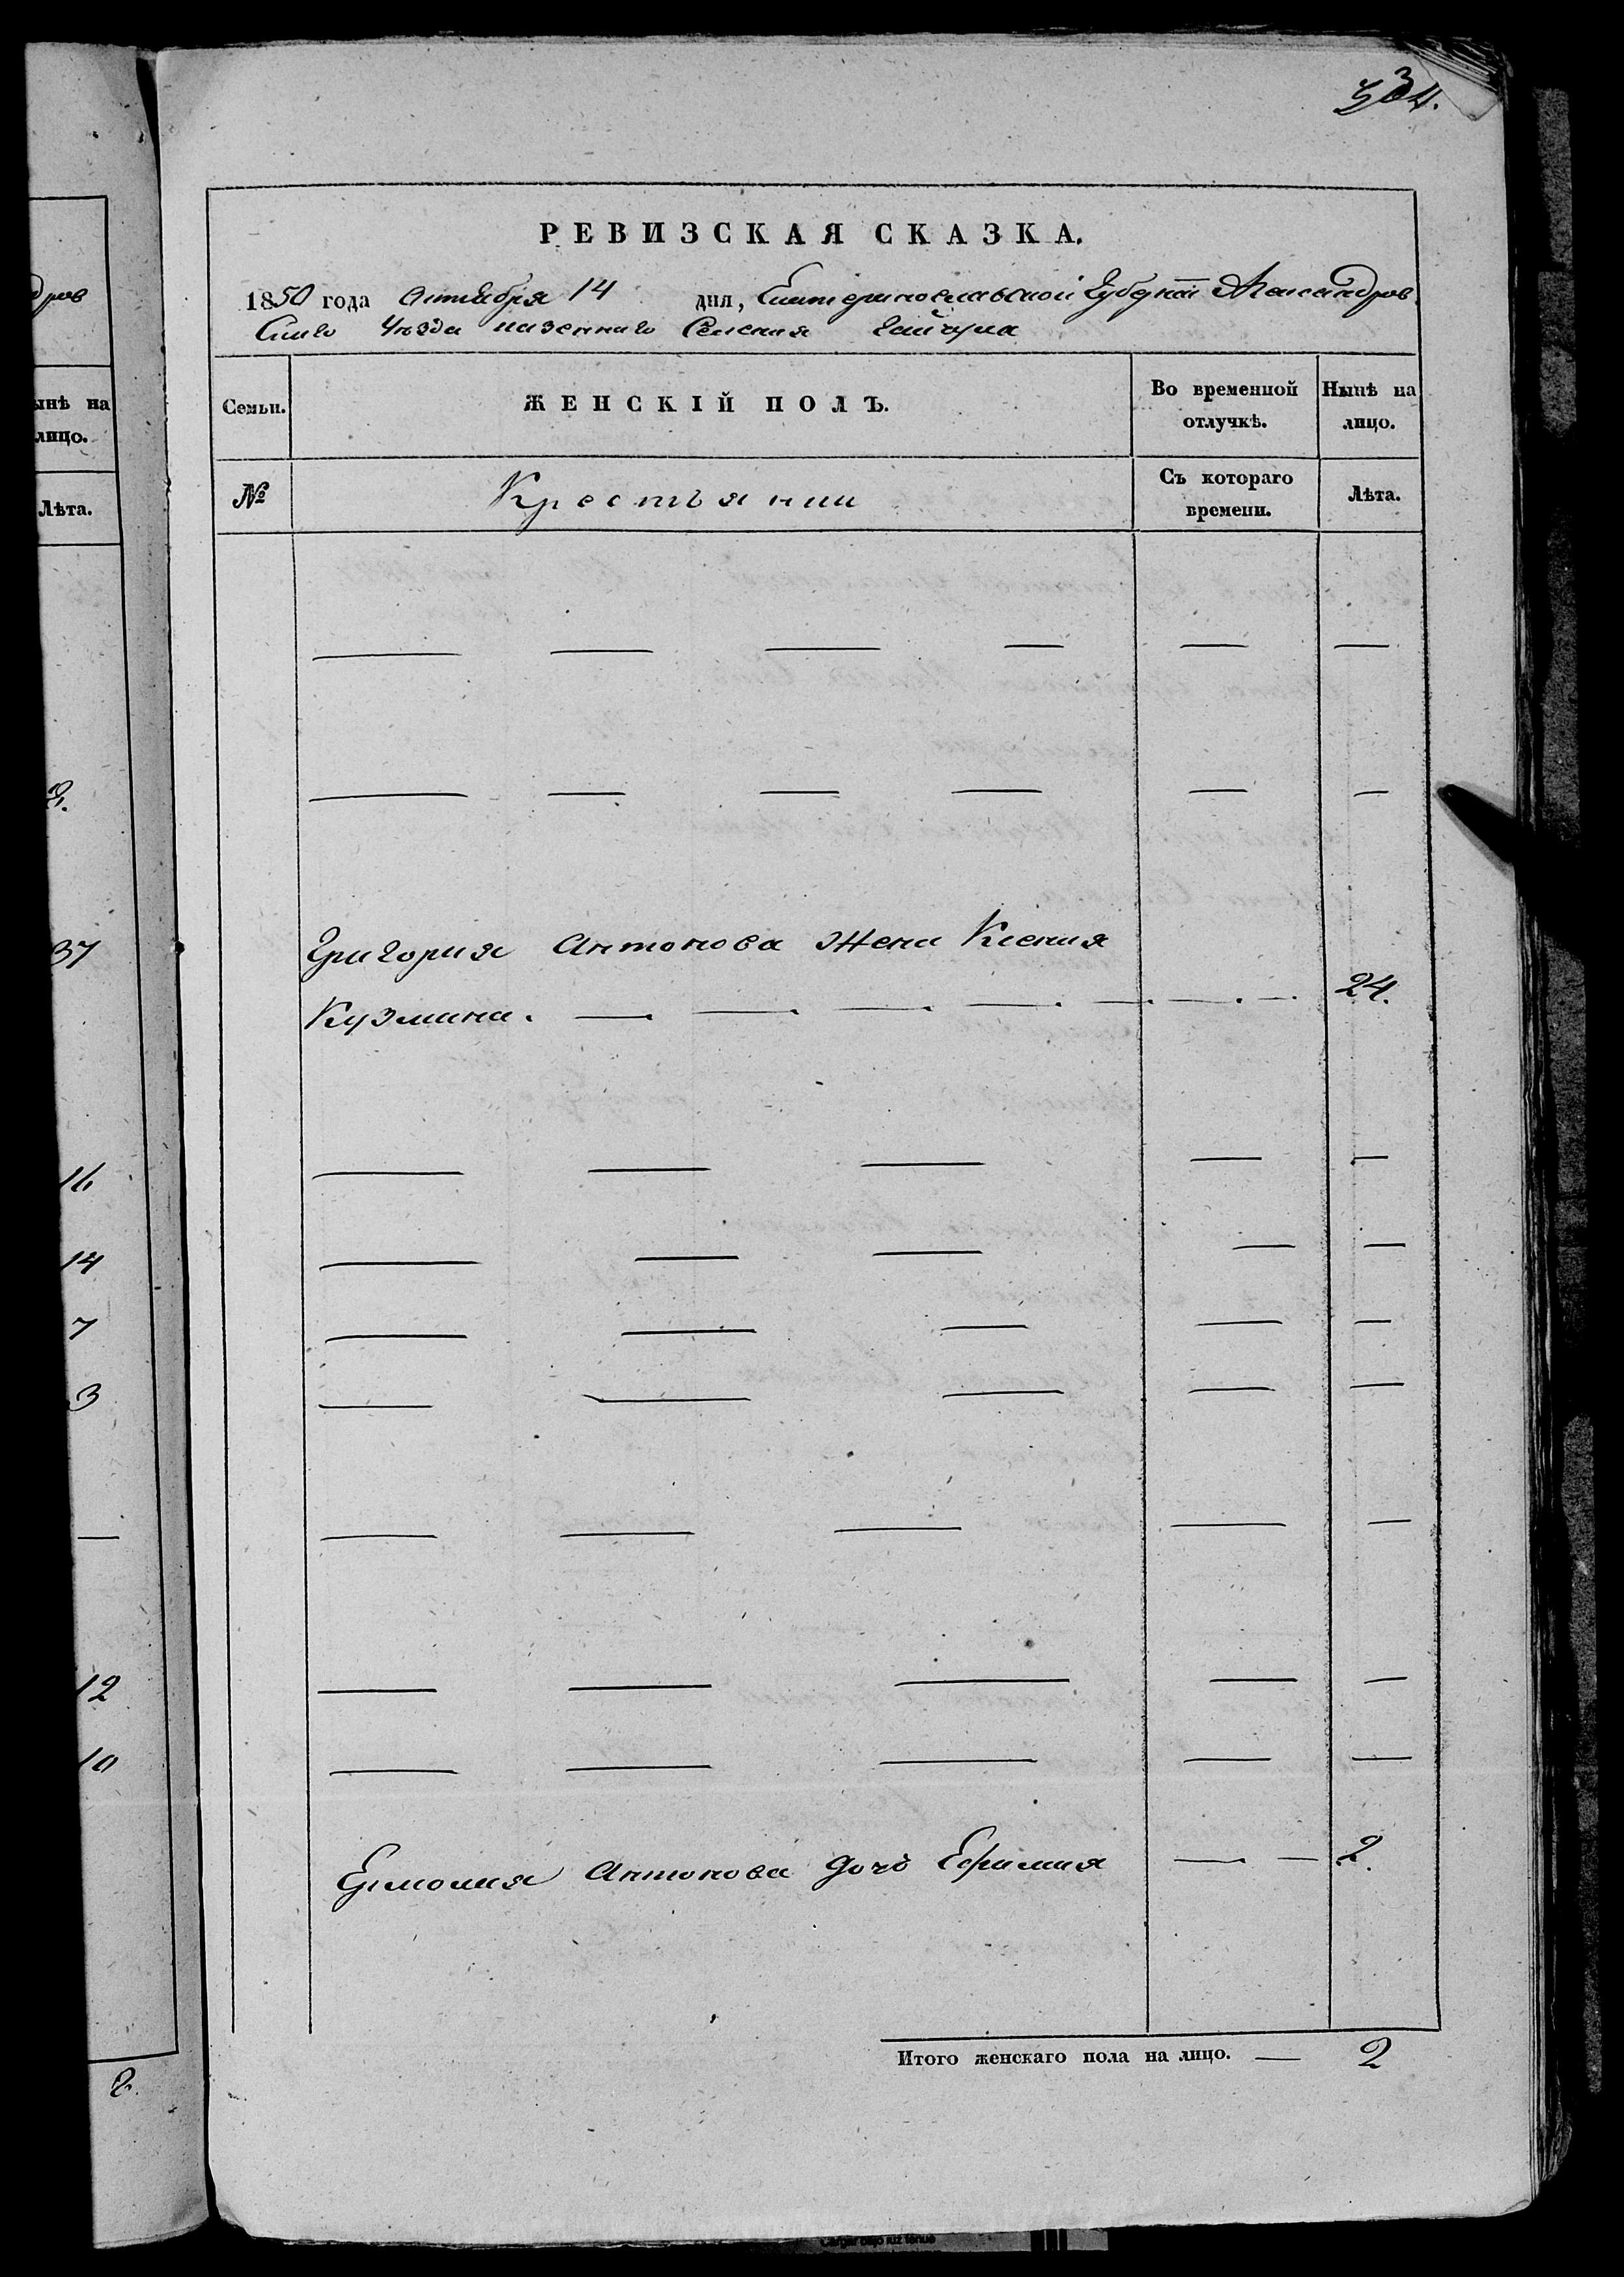 534.
РЕВИЗСКАЯ СКАЗКА.
1850 года октября 14 дня, Екатеринославской Губернии Александров
скаго уезда казеннаго Селения Гайчула
Семьи.
ЖЕНСКІЙ ПОЛЪ.
Во временной отлучкѣ.
Нынѣ на лицо.
№
Крестьянии
Съ котораго времени.
Лѣта.
Григория Антонова жена Ксения
Кузмина. 24.
Антонова дочь Ефимия 2.
Итого женскаго пола на лицо. — 2
дров
ынѣ на
лицо.
Лѣта.
2.
37
16
14
7
3
12
10
2.